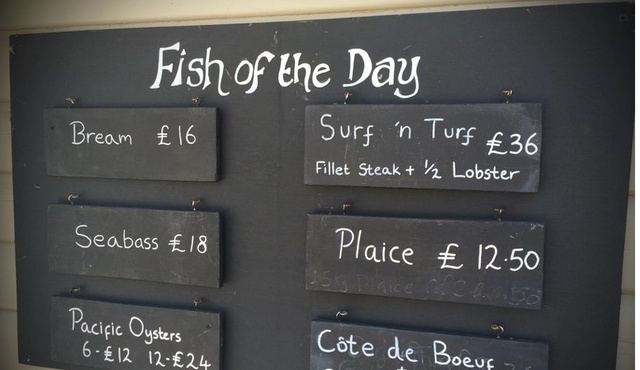 Fish of the Day
Bream £16
Seabass £18
Pacific Oysters
6-£12 12-£24
Surf 'n Turf £36
Fillet Steak + ½ Lobster
Plaice £ 12.50
Côte de Boeuf